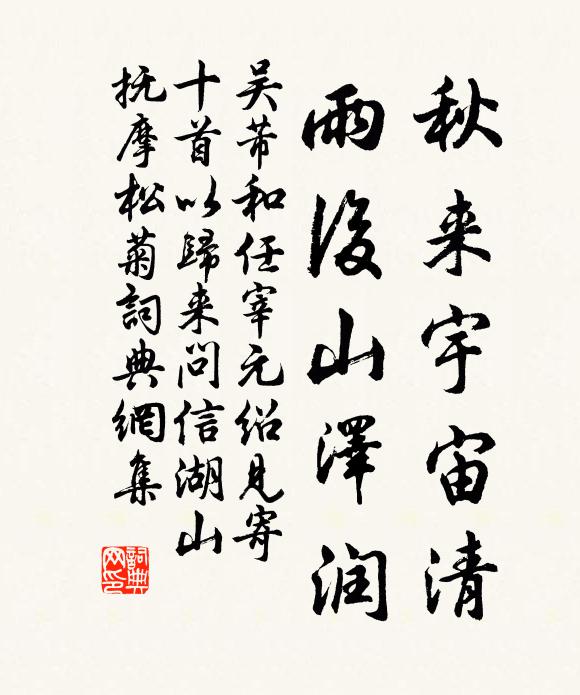 秋来宇宙清
雨後山澤润
吴芾和任宰元绍見寄
十首以歸来问信湖山
抚摩松菊詞典網集
詞典网印